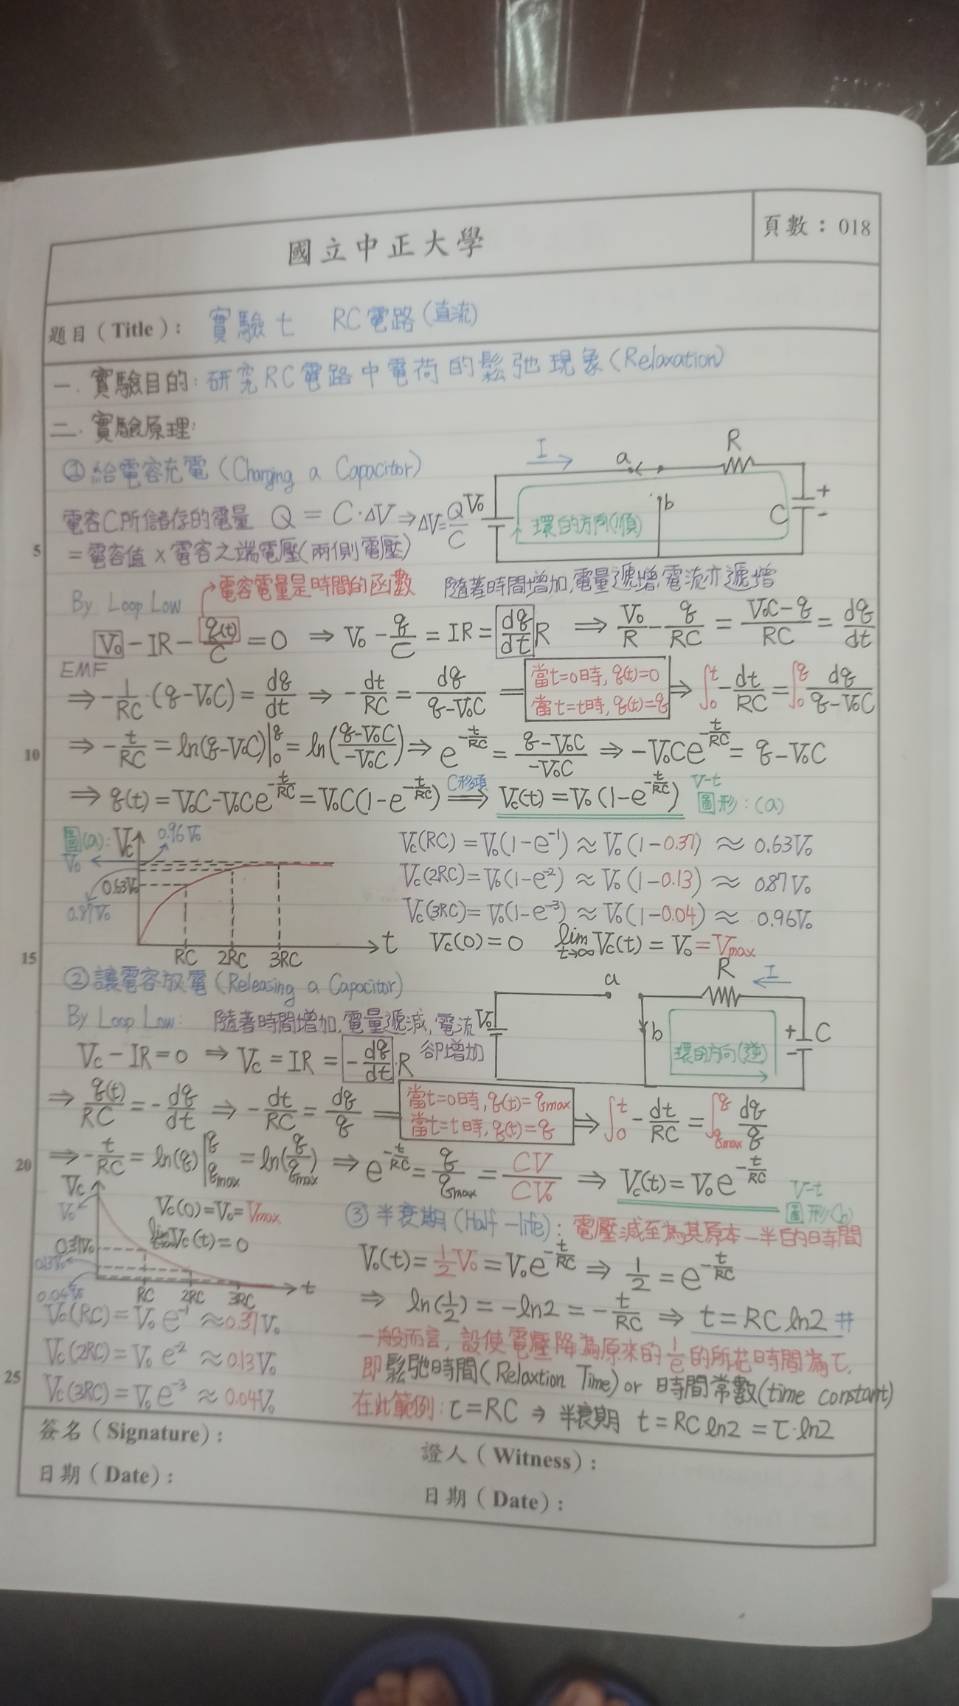 國立中正大學
頁數：018
題目（Title）： 實驗七 RC電路(直流)
一. 實驗目的：研究RC電路中電荷的鬆弛現象(Relaxation)
二. 實驗原理：
①給電容充電 (Charging a Capacitor)
電容C所儲存的電量 Q = C·ΔV ⇒ ΔV = Q/C
= 電容值 × 電容之端電壓(兩側電壓)
I → a R V₀ b C + - 環的方向(順)
5
電容電量是時間的函數
隨著時間增加,電量遞增,電流亦遞增
By Loop Low
V₀ - IR - q(t)/C = 0 ⇒ V₀ - q/C = IR = dq/dt R ⇒ V₀/R - q/RC = V₀C-q/RC = dq/dt
EMF
⇒ -1/RC·(q-V₀C) = dq/dt ⇒ -dt/RC = dq/q-V₀C = 當t=0時, q(t)=0 當t=t時, q(t)=q ⇒ ∫₀ᵗ -dt/RC = ∫₀^q dq/q-V₀C
10
⇒ -t/RC = ln(q-V₀C)|₀^q = ln(q-V₀C/-V₀C) ⇒ e^(-t/RC) = q-V₀C/-V₀C ⇒ -V₀Ce^(-t/RC) = q-V₀C
⇒ q(t) = V₀C-V₀Ce^(-t/RC) = V₀C(1-e^(-t/RC)) C移項 ⇒ Vc(t) = V₀(1-e^(-t/RC)) V-t 圖形：(a)
圖(a)： Vc 0.96V₀
V₀
0.63V₀
0.87V₀
RC 2RC 3RC t
Vc(RC) = V₀(1-e⁻¹) ≈ V₀(1-0.37) ≈ 0.63V₀
Vc(2RC) = V₀(1-e⁻²) ≈ V₀(1-0.13) ≈ 0.87V₀
Vc(3RC) = V₀(1-e⁻³) ≈ V₀(1-0.04) ≈ 0.96V₀
Vc(0) = 0 lim t→∞ Vc(t) = V₀ = Vmax
15
②讓電容放電 (Releasing a Capacitor)
a R I ← V₀ b + - C 環的方向(逆)
By Loop Low： 隨著時間增加,電量遞減,電流
卻增加
Vc - IR = 0 ⇒ Vc = IR = -dq/dt·R
⇒ q(t)/RC = -dq/dt ⇒ -dt/RC = dq/q = 當t=0時, q(t)=qmax 當t=t時, q(t)=q ⇒ ∫₀ᵗ -dt/RC = ∫qmax^q dq/q
20
⇒ -t/RC = ln(q)|qmax^q = ln(q/qmax) ⇒ e^(-t/RC) = q/qmax = CV/CV₀ ⇒ Vc(t) = V₀e^(-t/RC) V-t 圖形(b)
Vc
V₀
0.37V₀
0.13V₀
0.04V₀
RC 2RC 3RC t
Vc(0) = V₀ = Vmax
lim t→∞ Vc(t) = 0
③半衰期 (Half-life)：電壓減至為其原本一半的時間
Vc(t) = 1/2 V₀ = V₀e^(-t/RC) ⇒ 1/2 = e^(-t/RC)
⇒ ln(1/2) = -ln2 = -t/RC ⇒ t = RC ln2 #
Vc(RC) = V₀ e⁻¹ ≈ 0.37V₀
Vc(2RC) = V₀ e⁻² ≈ 0.13V₀
Vc(3RC) = V₀ e⁻³ ≈ 0.04V₀
一般而言, 設使電壓降為原來的1/e的所花時間為τ,
25
即鬆弛時間(Relaxtion Time) or 時間常數(time constant)
在此範例：τ=RC ⇒ 半衰期 t = RC ln2 = τ·ln2
簽名（Signature）：
證人（Witness）：
日期（Date）：
日期（Date）：